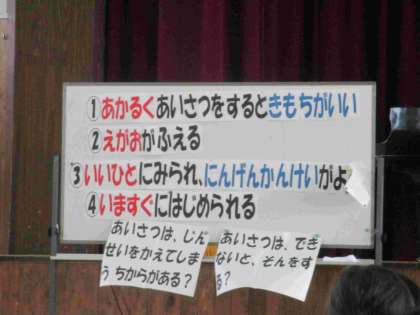 ①あかるくあいさつをするときもちがいい
②えがおがふえる
③いいひとにみられ、にんげんかんけいがよ
④いますぐにはじめられる
あいさつは、じん
せいをかえてしま
うちからがある？
あいさつは、でき
ないと、そんをす
る？